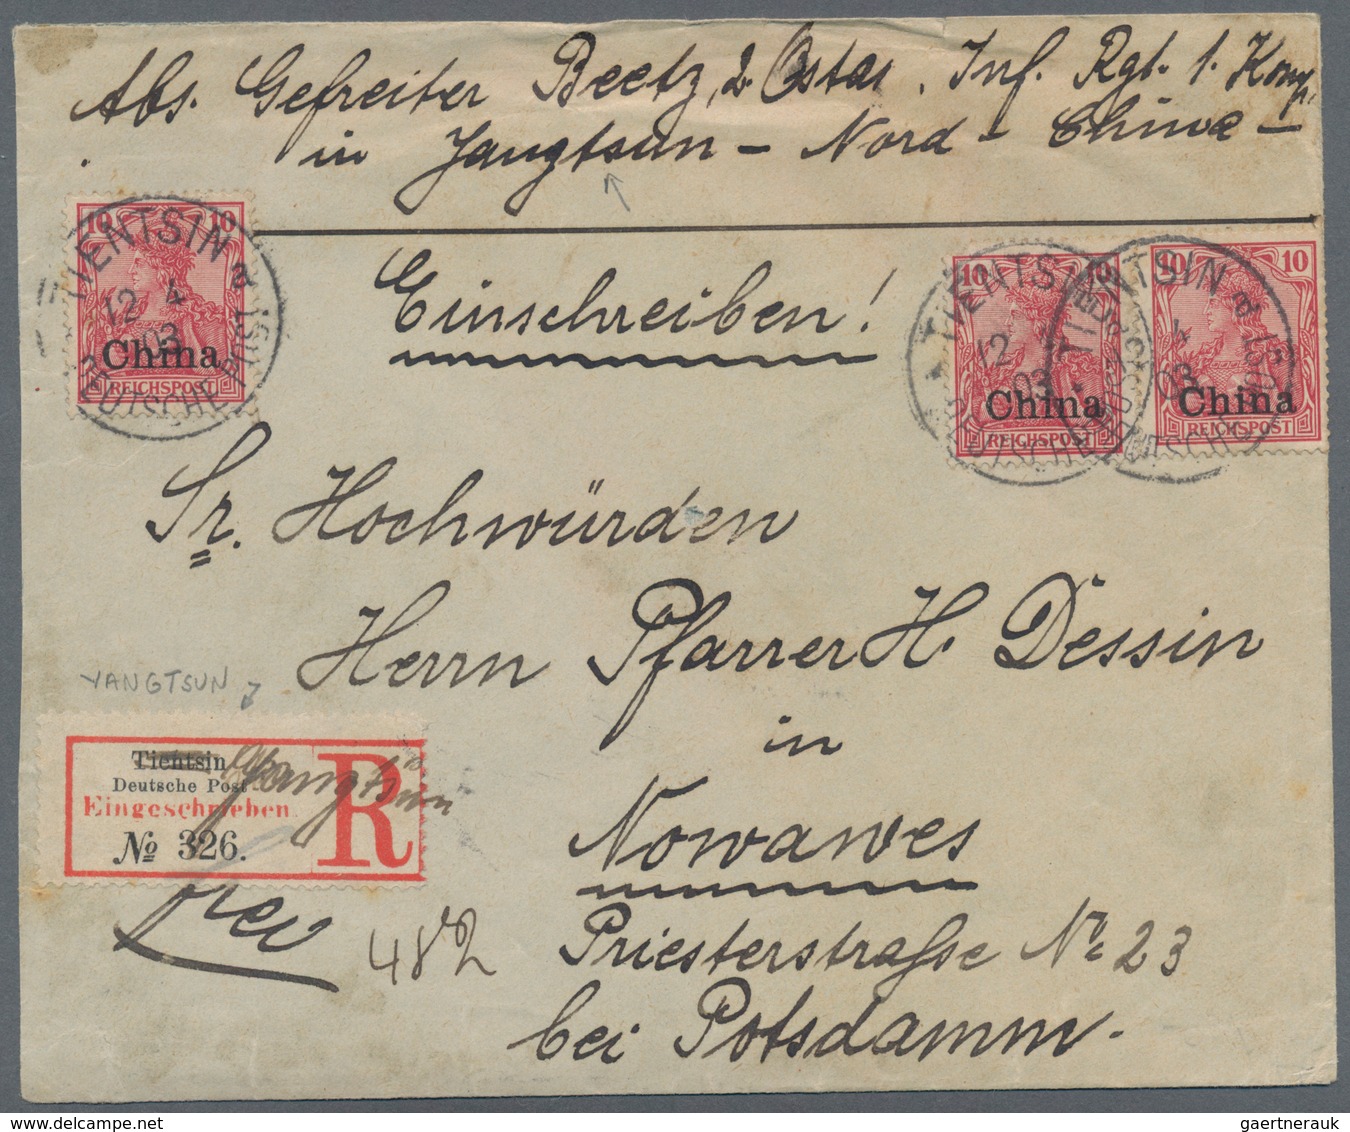 Abs. Gefreiter Beetz, 2. Ostas. Inf. Rgt. 1. Komp.
in Jangtsun - Nord - China -
10 10
TIENTSIN a
12 4
03
DEUTSCHE POST
China
REICHSPOST
Einschreiben!
10 10
TIENTSIN
12
03
DEUTSCHE
China
REICHSPOST
10 10
TIENTSIN a
4
03
DEUTSCHE POST
China
REICHSPOST
Sr. Hochwürden
Herrn Pfarrer H. Dessin
YANGTSUN
in
Tientsin Yangtsun
Deutsche Post
Eingeschrieben.
No 326.
R
Nowawes
frei
482
Priesterstraße No 23
bei Potsdamm.
gaertnerauk